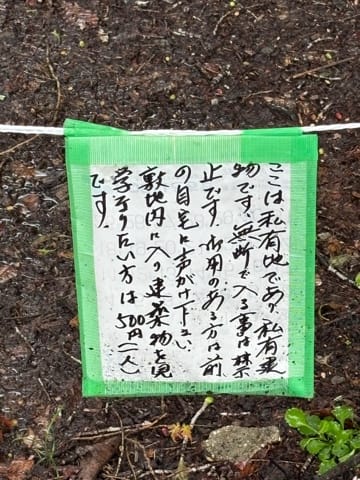 ここは私有地であり、私有建
物です、無断で入る事は禁
止です。御用のある方は前
の自宅に声がけ下さい
敷地内に入り建築物を見
学されたい方は500円(一人)
です。